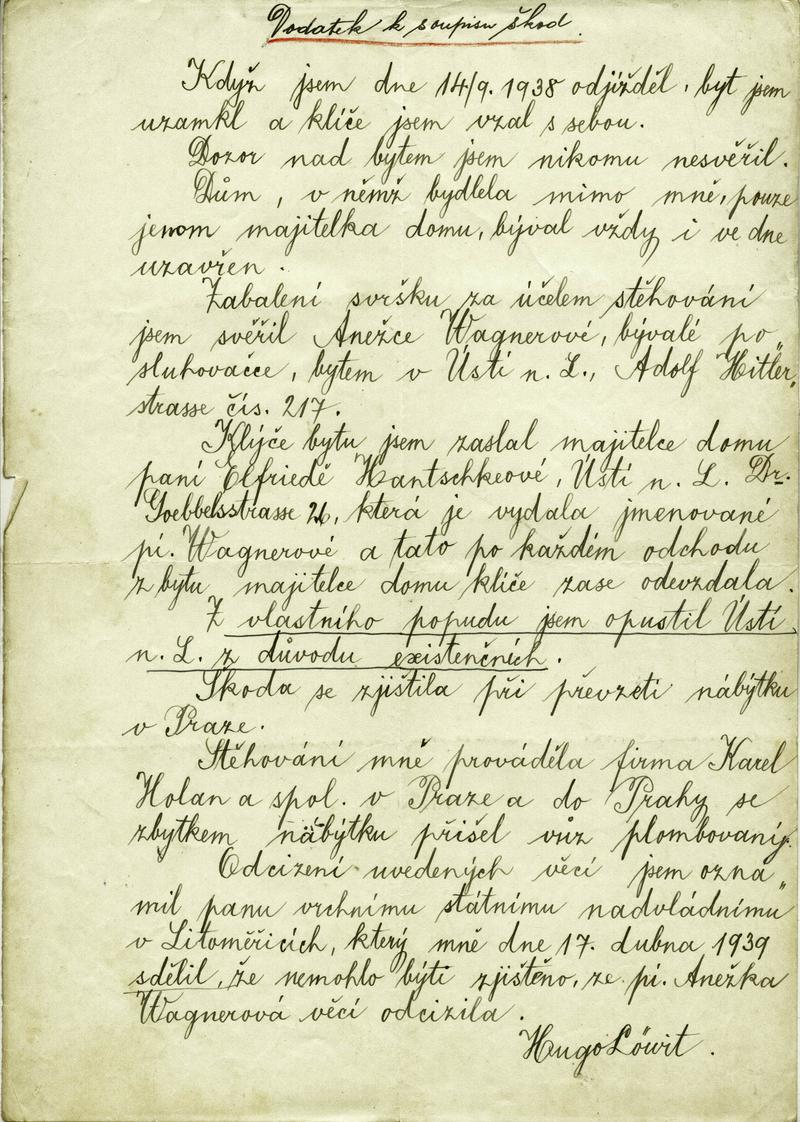 Dodatek k soupisu škod.
Když jsem dne 14/9. 1938 odjížděl, byt jsem
uzamkl a klíče jsem vzal s sebou.
Dozor nad bytem jsem nikomu nesvěřil.
Dům, v němž bydlela mimo mně, pouze
jenom majitelka domu, býval vždy i ve dne
uzavřen.
Zabalení svršku za účelem stěhování
jsem svěřil Anežce Wagnerové, bývalé po„
sluhovačce, bytem v Ústí n. L., Adolf Hitler„
strasse čís. 217.
Klíče bytu jsem zaslal majitelce domu
paní Elfriedě Hantschkeové, Ústí n. L. Dr.
Goebbelsstrasse 26, která je vydala jmenované
pí. Wagnerové a tato po každém odchodu
z bytu majitelce domu klíče zase odevzdala.
Z vlastního popudu jsem opustil Ústí
n. L. z důvodu existenčních.
Škoda se zjištila při převzeti nábytku
v Praze.
Stěhování mně prováděla firma Karel
Holan a spol. v Praze a do Prahy se
zbytkem nábytku přišel vůz plombovaný.
Odcizení uvedených věcí jsem ozna„
mil panu vrchnímu státnímu nadvládnímu
v Litoměřicích, který mně dne 17. dubna 1939
sdělil, že nemohlo býti zjištěno, že pí. Anežka
Wagnerová věcí odcizila.
Hugo Löwit.